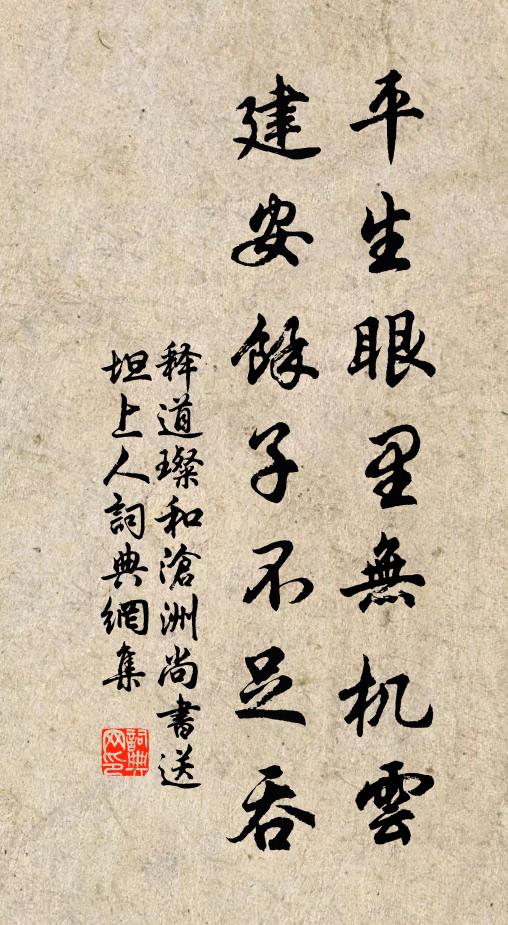 平生眼里無机雲
建安餘子不足吞
释道璨和滄洲尚書送
坦上人詞典網集
詞典網印